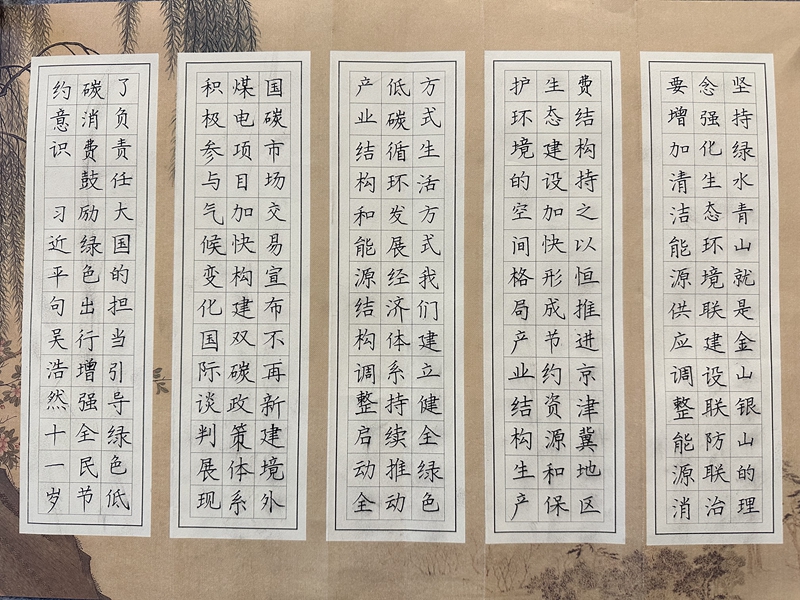 坚持绿水青山就是金山银山的理
念强化生态环境联建设联防联治
要增加清洁能源供应调整能源消
费结构持之以恒推进京津冀地区
生态建设加快形成节约资源和保
护环境的空间格局产业结构生产
方式生活方式我们建立健全绿色
低碳循环发展经济体系持续推动
产业结构和能源结构调整启动全
国碳市场交易宣布不再新建境外
煤电项目加快构建双碳政策体系
积极参与气候变化国际谈判展现
了负责任大国的担当引导绿色低
碳消费鼓励绿色出行增强全民节
约意识 习近平句吴浩然十一岁